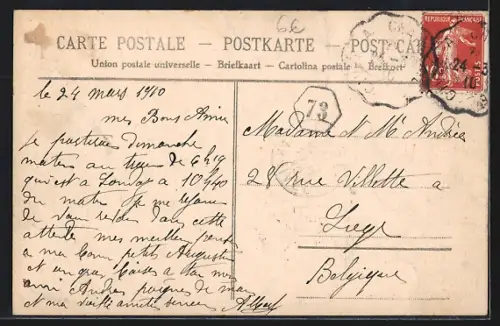 6€
CARTE POSTALE – POSTKARTE – POST CAR
Union postale universelle – Briefkaart – Cartolina postale – Brefkort
REPUBLIQUE FRANÇAISE
24
10
73
le 24 mars 1910
mes Bons Amis
Je partirai Dimanche
matin au train de 6h19
qui est a 10h40
du matin Je me
de vous revoir dans cette
attente mes meilleurs
a ma petit Augustin
et un gros a mon
ami André poignée de main
et ma vieille amitié
Albert
Madame et Mr André
28 rue Villette a
Liege
Belgique